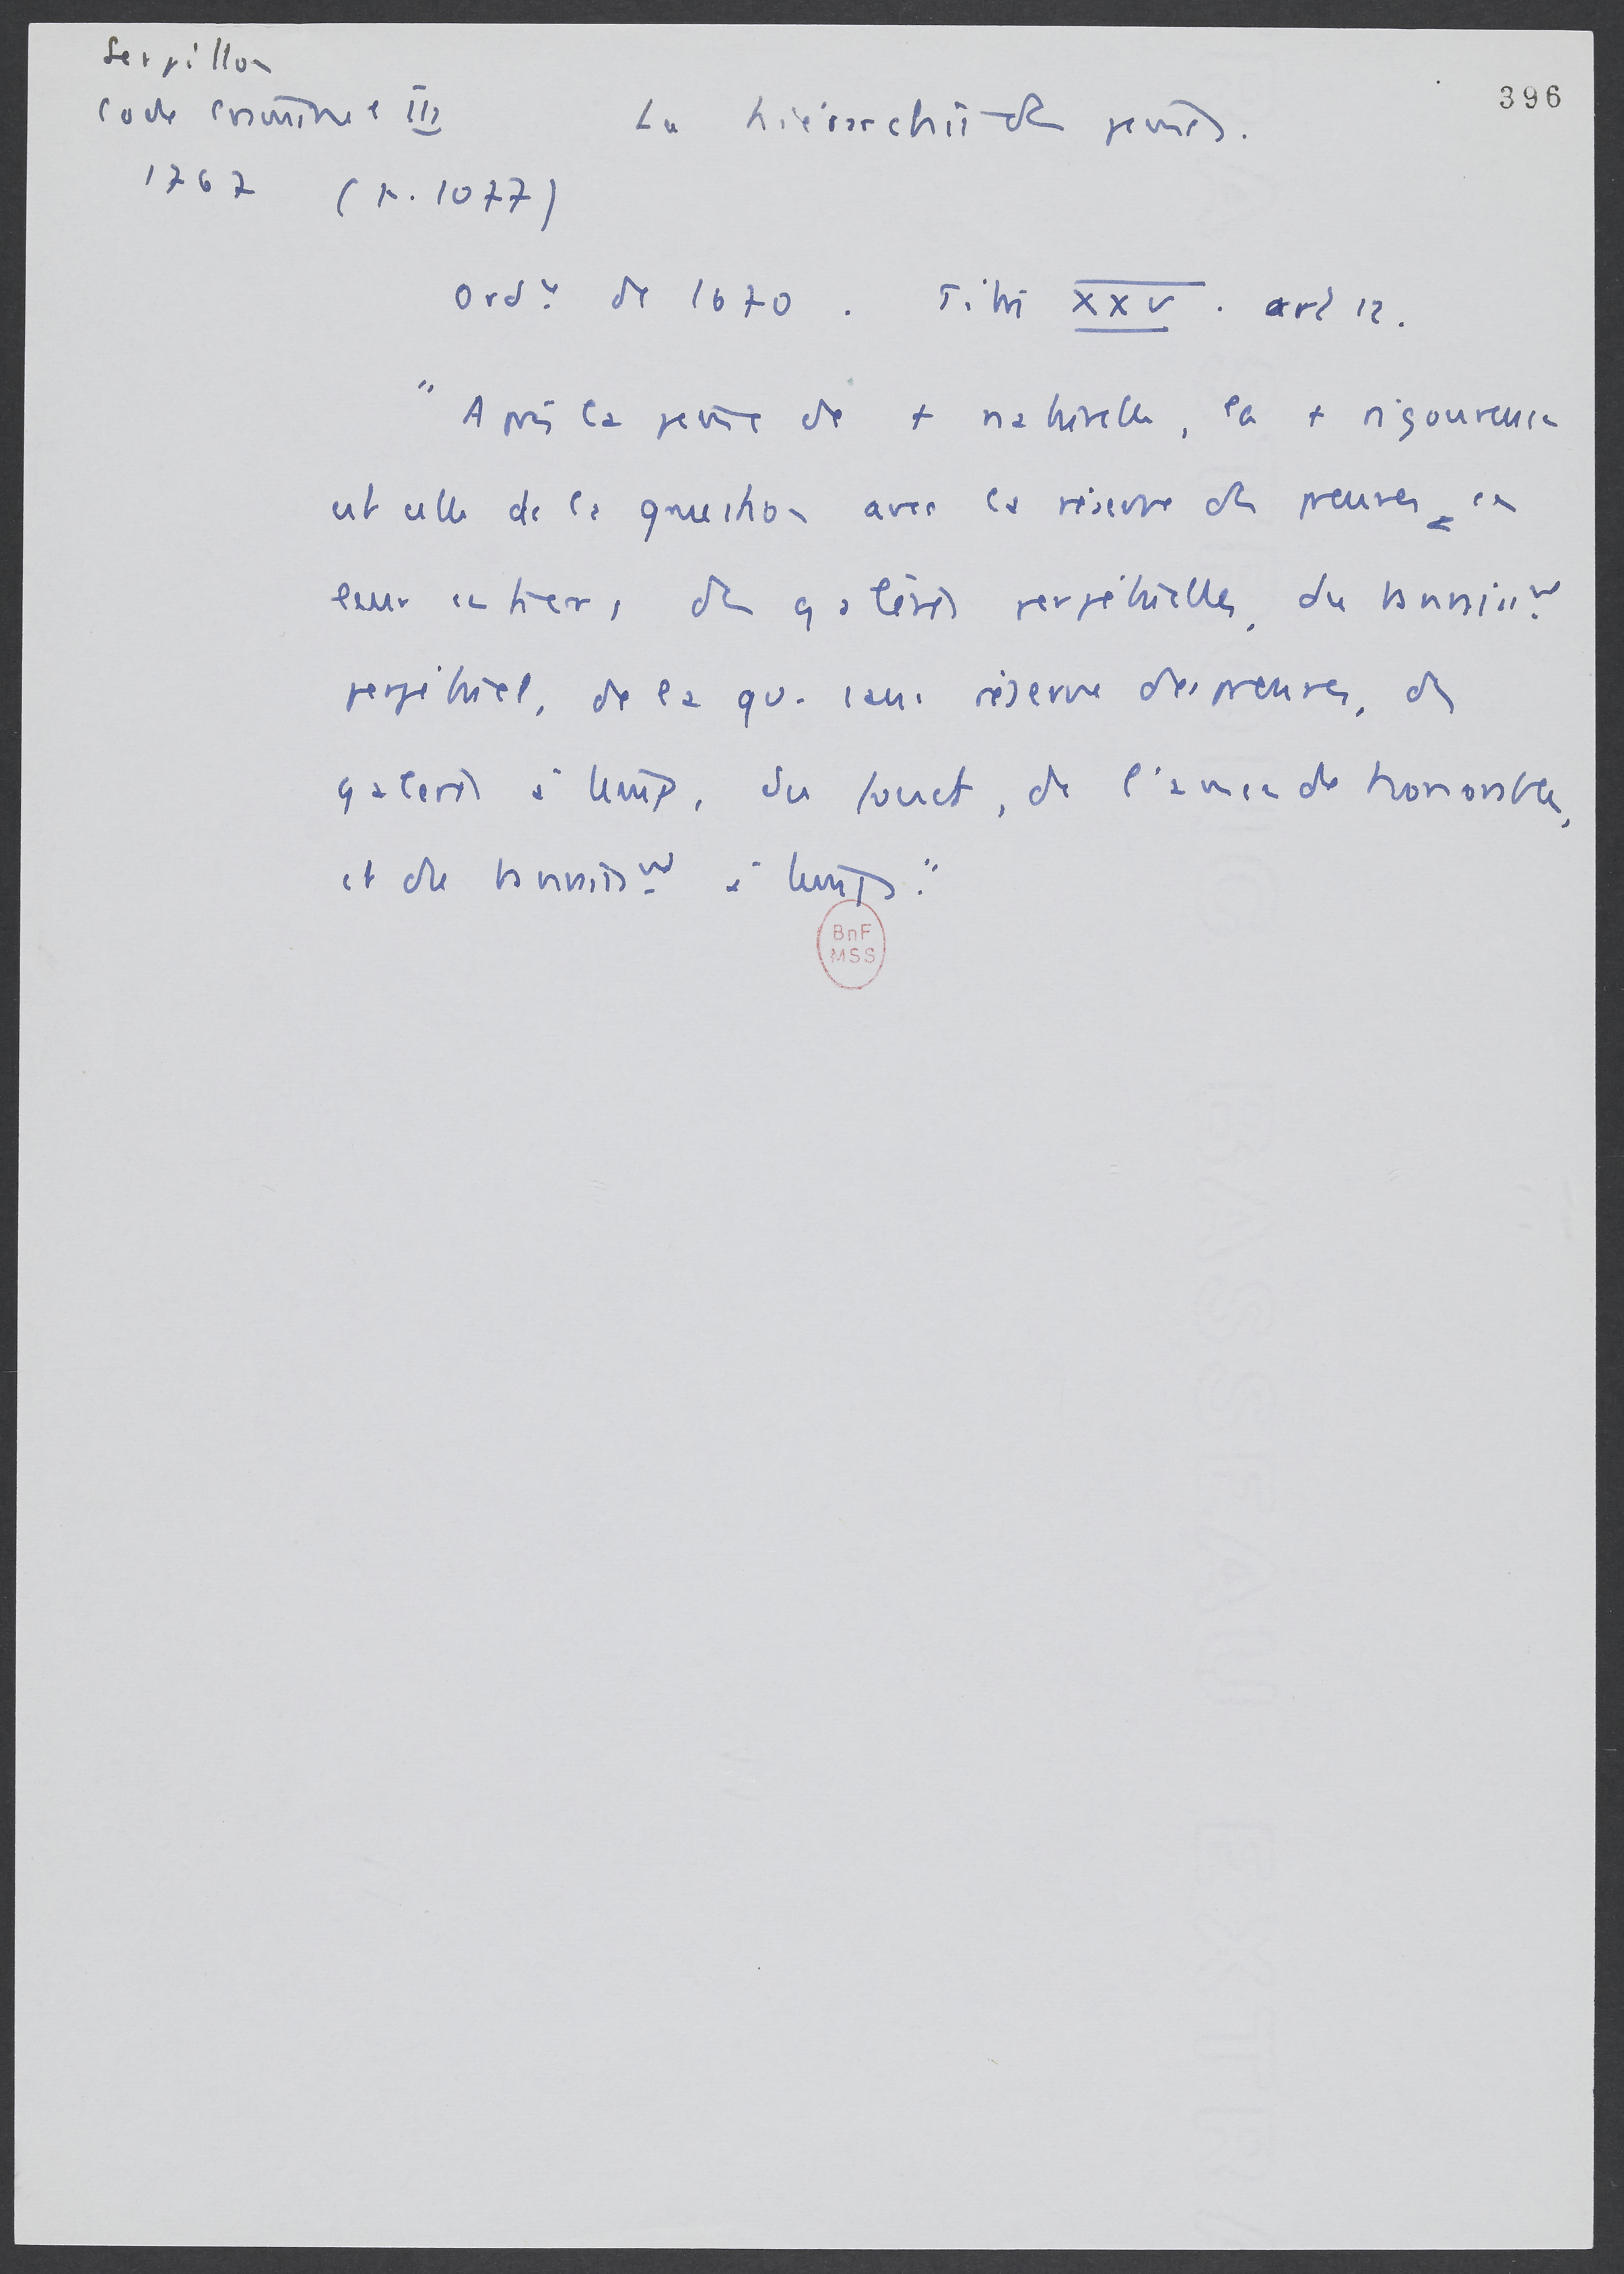 Serpillon
Code Criminel III
1767 (p. 1077)
396
La hiérarchie des peines.
Ordce de 1670. Titre XXV. art 12.
"Après la peine de + naturelle, la + rigoureuse
est celle de la question avec la réserve des preuves en
leur entier, des galères perpétuelles, du bannissent
perpétuel, de la qu. sans réserve des preuves, des
galères à temps, du fouet, de l'amende honorable,
et du bannisst à temps."
BnF
MSS